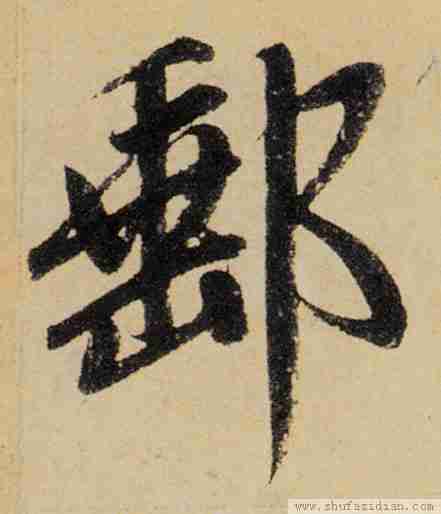 郵
www.shufazidian.com